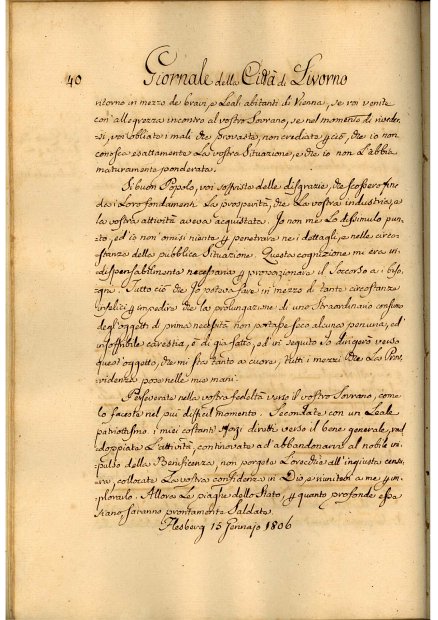 40 Giornale della Città di Livorno
ritorno in mezzo de bravi, e Leali abitanti di Vienna, se voi venite
con allegrezza incontro al vostro Sovrano, se nel momento di riveder-
vi, voi obliate i mali che provaste, non crediate che io non
conosca esattamente la vostra Situazione, e che io non l'abbia
maturamente ponderata.
Si buon Popolo, voi soffriste delle disgrazie, che scossero fino
dai Loro fondamenti la prosperità, che la vostra industria, e
la vostra attività aveva acquistata. Io non me lo dissimulo pun-
:to, ed io non omisi niente penetrare nei dettagli, e nelle circo-
stanze della pubblica Situazione. Questa cognizione mi era in-
:dispensabilmente necessaria proporzionare il Soccorso a biso-
:gni. Tutto ciò che si poteva fare in mezzo di tante circostanze
infelici impedire che la prolungazione di uno straordinario consumo
degl'oggetti di prima necessità non portasse seco alcuna penuria, ed
insoffribile carestia, è di già fatto, ed in seguito Io dirigerò verso
quest'oggetto, che mi sta tanto a cuore, tutti i mezzi che la Prov-
videnza pose nelle mie mani.
Perseverate nella vostra fedeltà verso il vostro Sovrano, come
lo faceste nel più difficil momento. Secondate con un Leale
patriottismo i miei costanti sforzi diretti verso il bene generale, rad-
:doppiate l'attività, continovate ad abbandonarvi al nobile im-
:pulso della Beneficenza, non porgete l'orecchia all'ingiusta censu-
:ra, collocate la vostra confidenza in Dio, e riunitevi a me im-
:plorarlo. Allora le piaghe dello Stato, quanto profonde esse
siano saranno prontamente Saldate.
15 Gennajo 1806